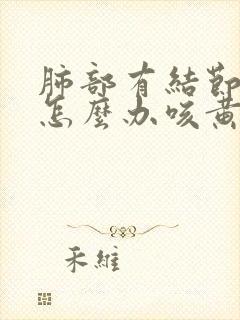 肺部有結節
怎麼办咳黃
禾維